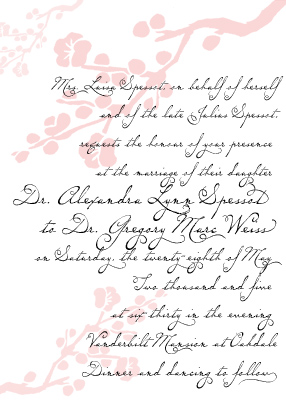 Mrs. Luisa Spessot, on behalf of herself
and of the late Julius Spessot,
requests the honour of your presence
at the marriage of their daughter
Dr. Alexandra Lynn Spessot
to Dr. Gregory Marc Weiss
on Saturday, the twenty eighth of May
Two thousand and five
at six thirty in the evening
Vanderbilt Mansion at Oakdale
Dinner and dancing to follow